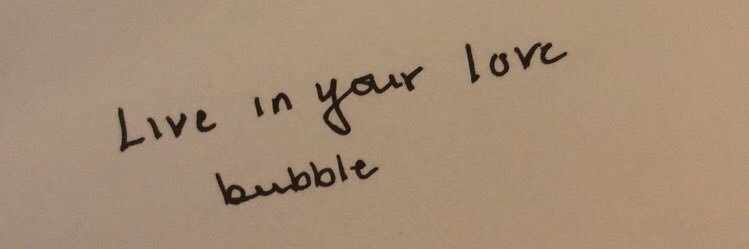 Live in your love
bubble